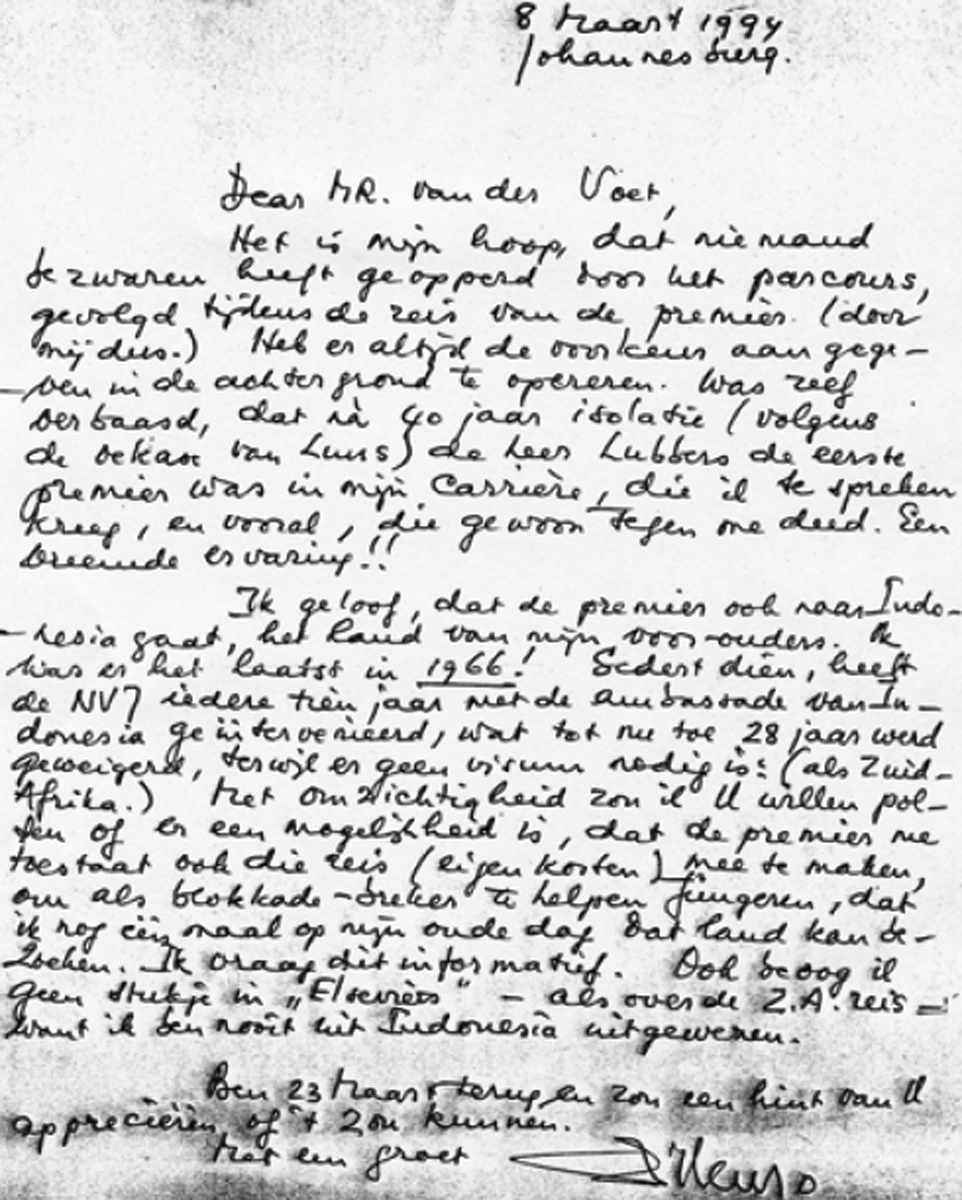 8 Maart 1994
Johannesburg.
Dear MR. van der Voet,
Het is mijn hoop, dat niemand
bezwaren heeft geopperd voor het parcours,
gevolgd tijdens de reis van de premier. (door
mij dus.) Heb er altijd de voorkeur aan gege-
-ven in de achtergrond te opereren. Was zelf
verbaasd, dat nà 40 jaar isolatie (volgens
de van Luns) de heer Lubbers de eerste
premier was in mijn carrière, die ik te spreken
kreeg, en vooral, die gewoon tegen me deed. Een
vreemde ervaring!!
Ik geloof, dat de premier ook naar Indo-
-nesia gaat, het land van mijn voor-ouders. Ik
was er het laatst in 1966! Sedert dien, heeft
de NVJ iedere tien jaar met de ambassade van In-
donesia geïntervenieerd, wat tot nu toe 28 jaar werd
geweigerd, terwijl er geen visum nodig is: (als Zuid-
Afrika.) Met omzichtigheid zou ik U willen pol-
sen of er een mogelijkheid is, dat de premier me
toestaat ook die reis (eigen kosten) mee te maken,
om als blokkade-breker te helpen fungeren, dat
ik nog één maal op mijn oude dag dat land kan be-
zoeken. Ik vraag dit informatief. Ook beoog ik
geen stukje in „Elseviers" - als over de Z.A. reis -
want ik ben nooit uit Indonesia uitgewezen.
Ben 23 Maart terug en zou een hint van U
appreciëren of 't zou kunnen.
Met een groet